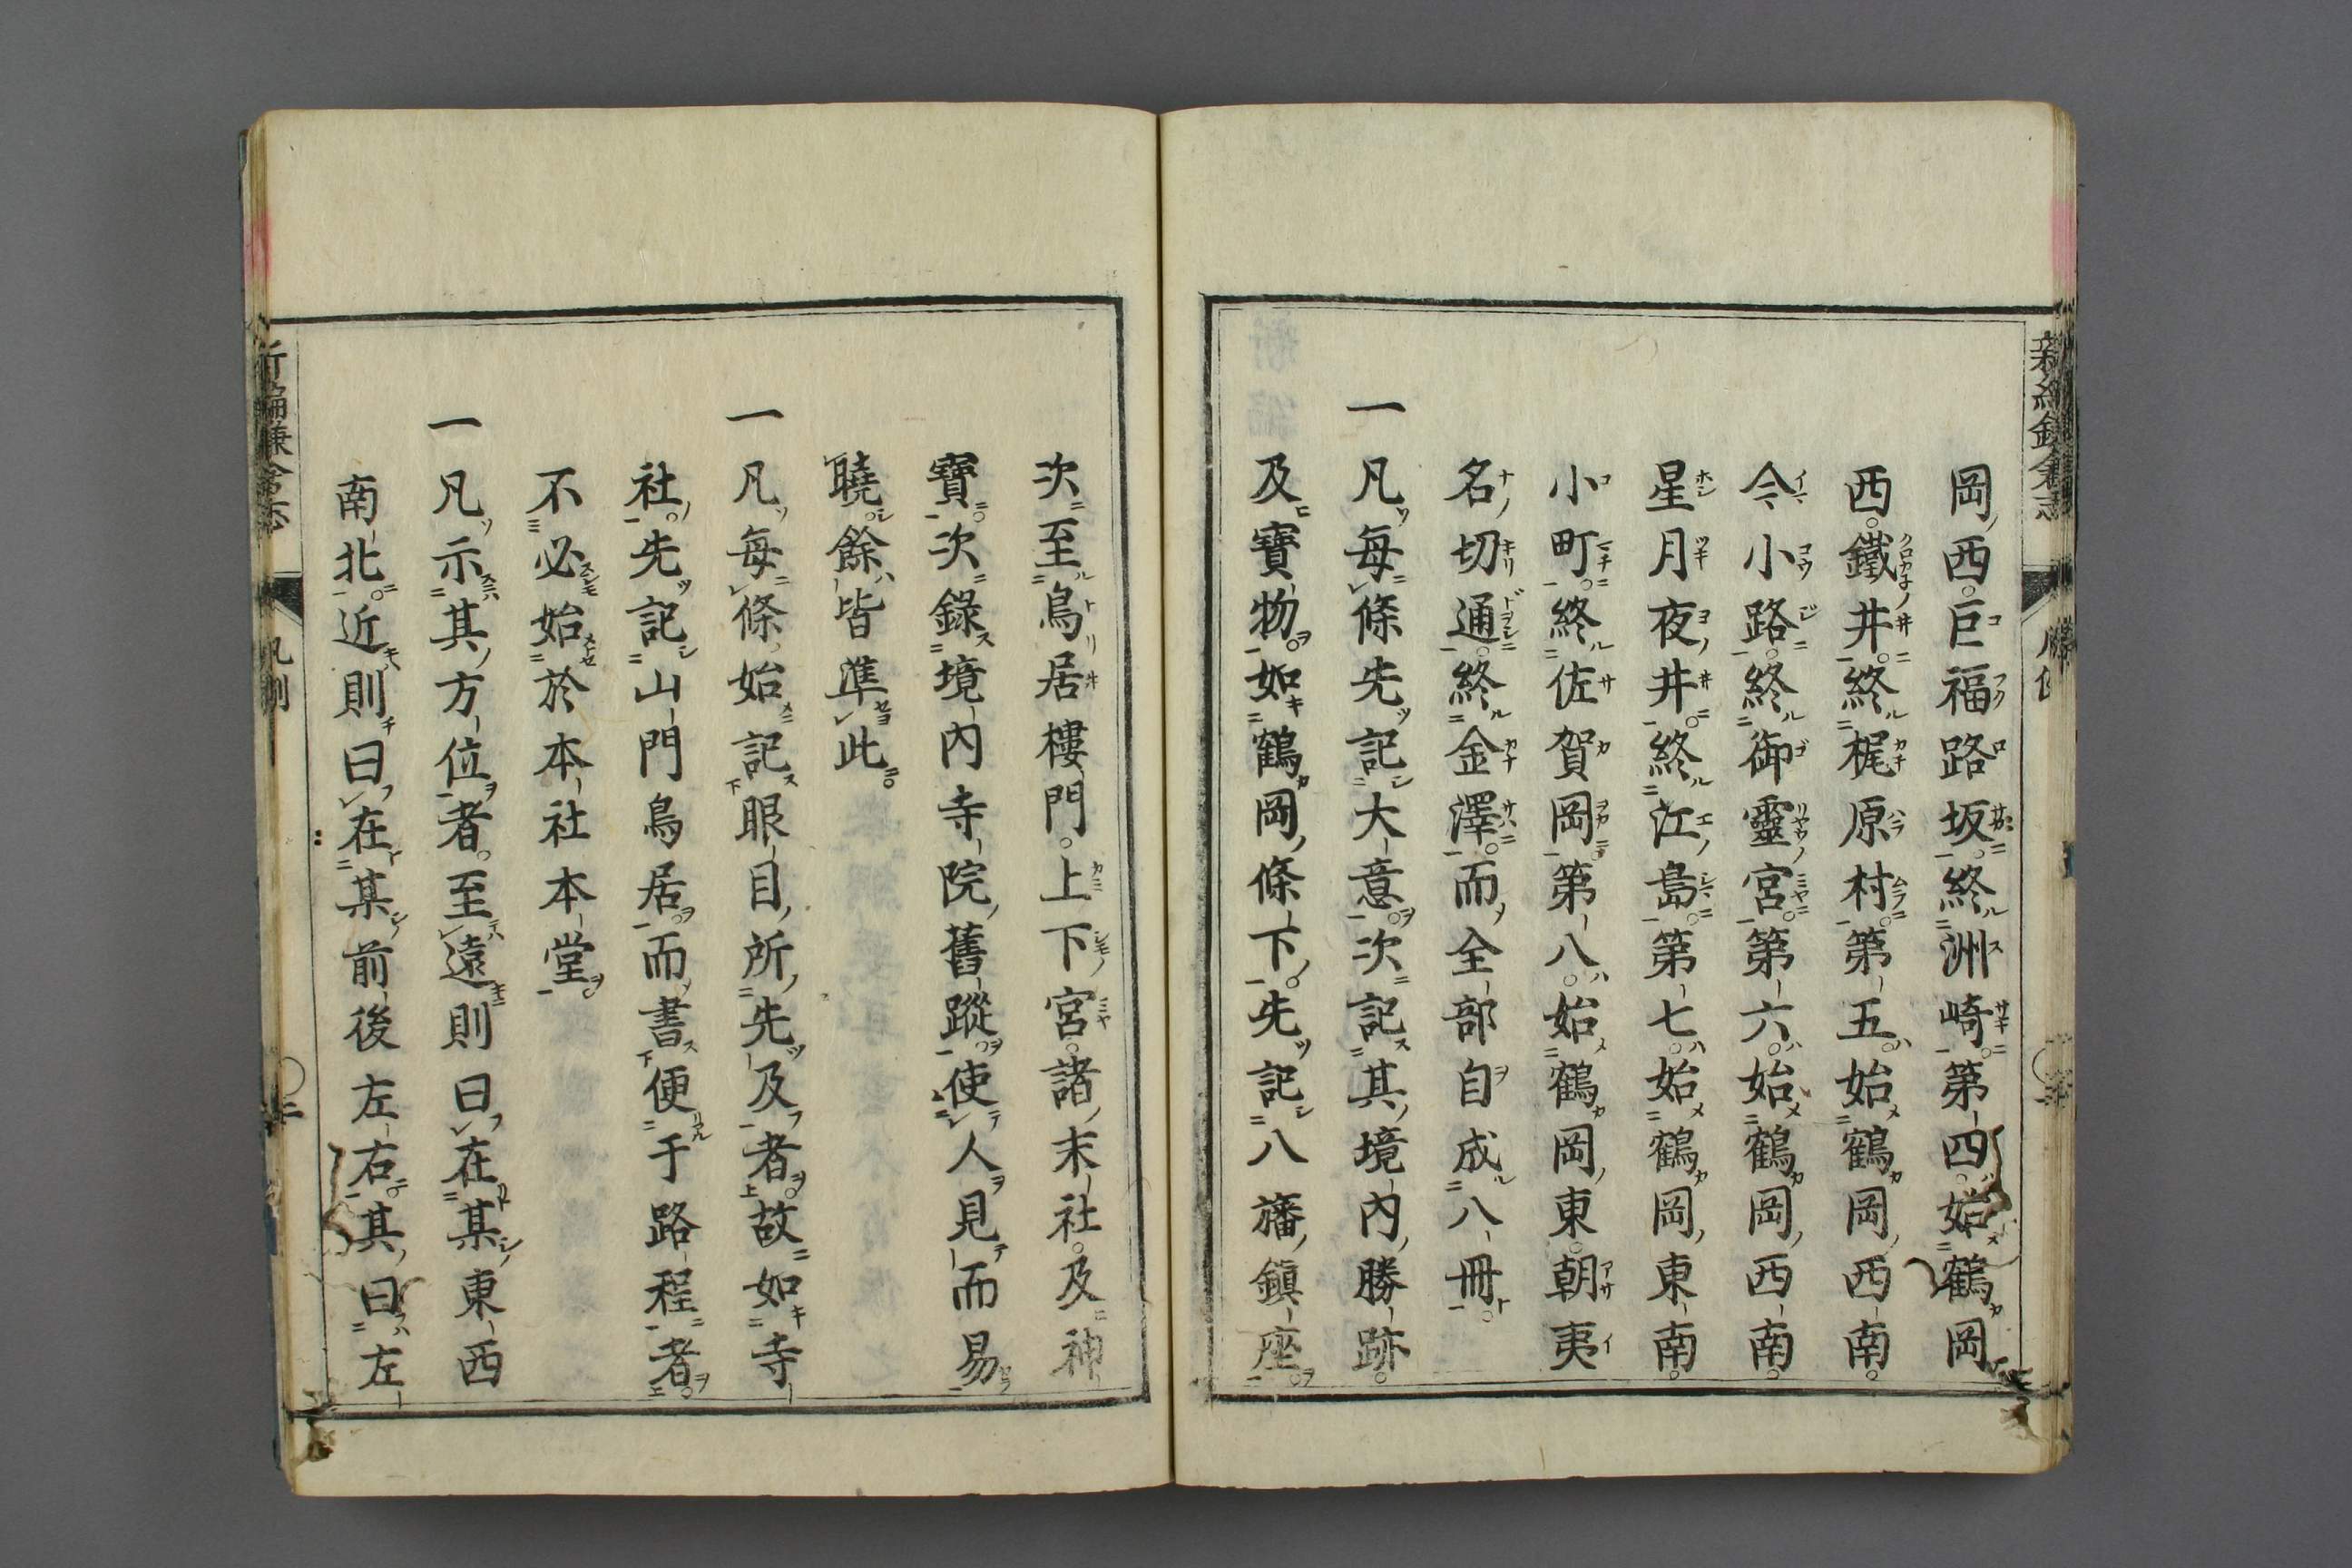 岡西。巨福路坂。終洲崎。第四。始鶴岡
西。鐵井。終梶原村。第五。始鶴岡西南。
今小路。終御靈宮。第六。始鶴岡西南。
星月夜井。終江島。第七。始鶴岡東南。
小町。終佐賀岡。第八。始鶴岡東。朝夷
名切通。終金澤。而全部自成八冊。
一凡每條先記大意。次記其境內勝跡。
及寶物。如鶴岡條下。先記八旛鎮座。
次至鳥居樓門。上下宮。諸末社。及神
寶。次錄境內寺院舊蹤。使人見而易
曉。餘皆準此。
一凡每條始記眼目所先及者。故如寺
社。先記山門鳥居。而書便于路程者。
不必始於本社本堂。
一凡示其方位者。至遠則曰在某東西
南北。近則曰在某前後左右。其曰左